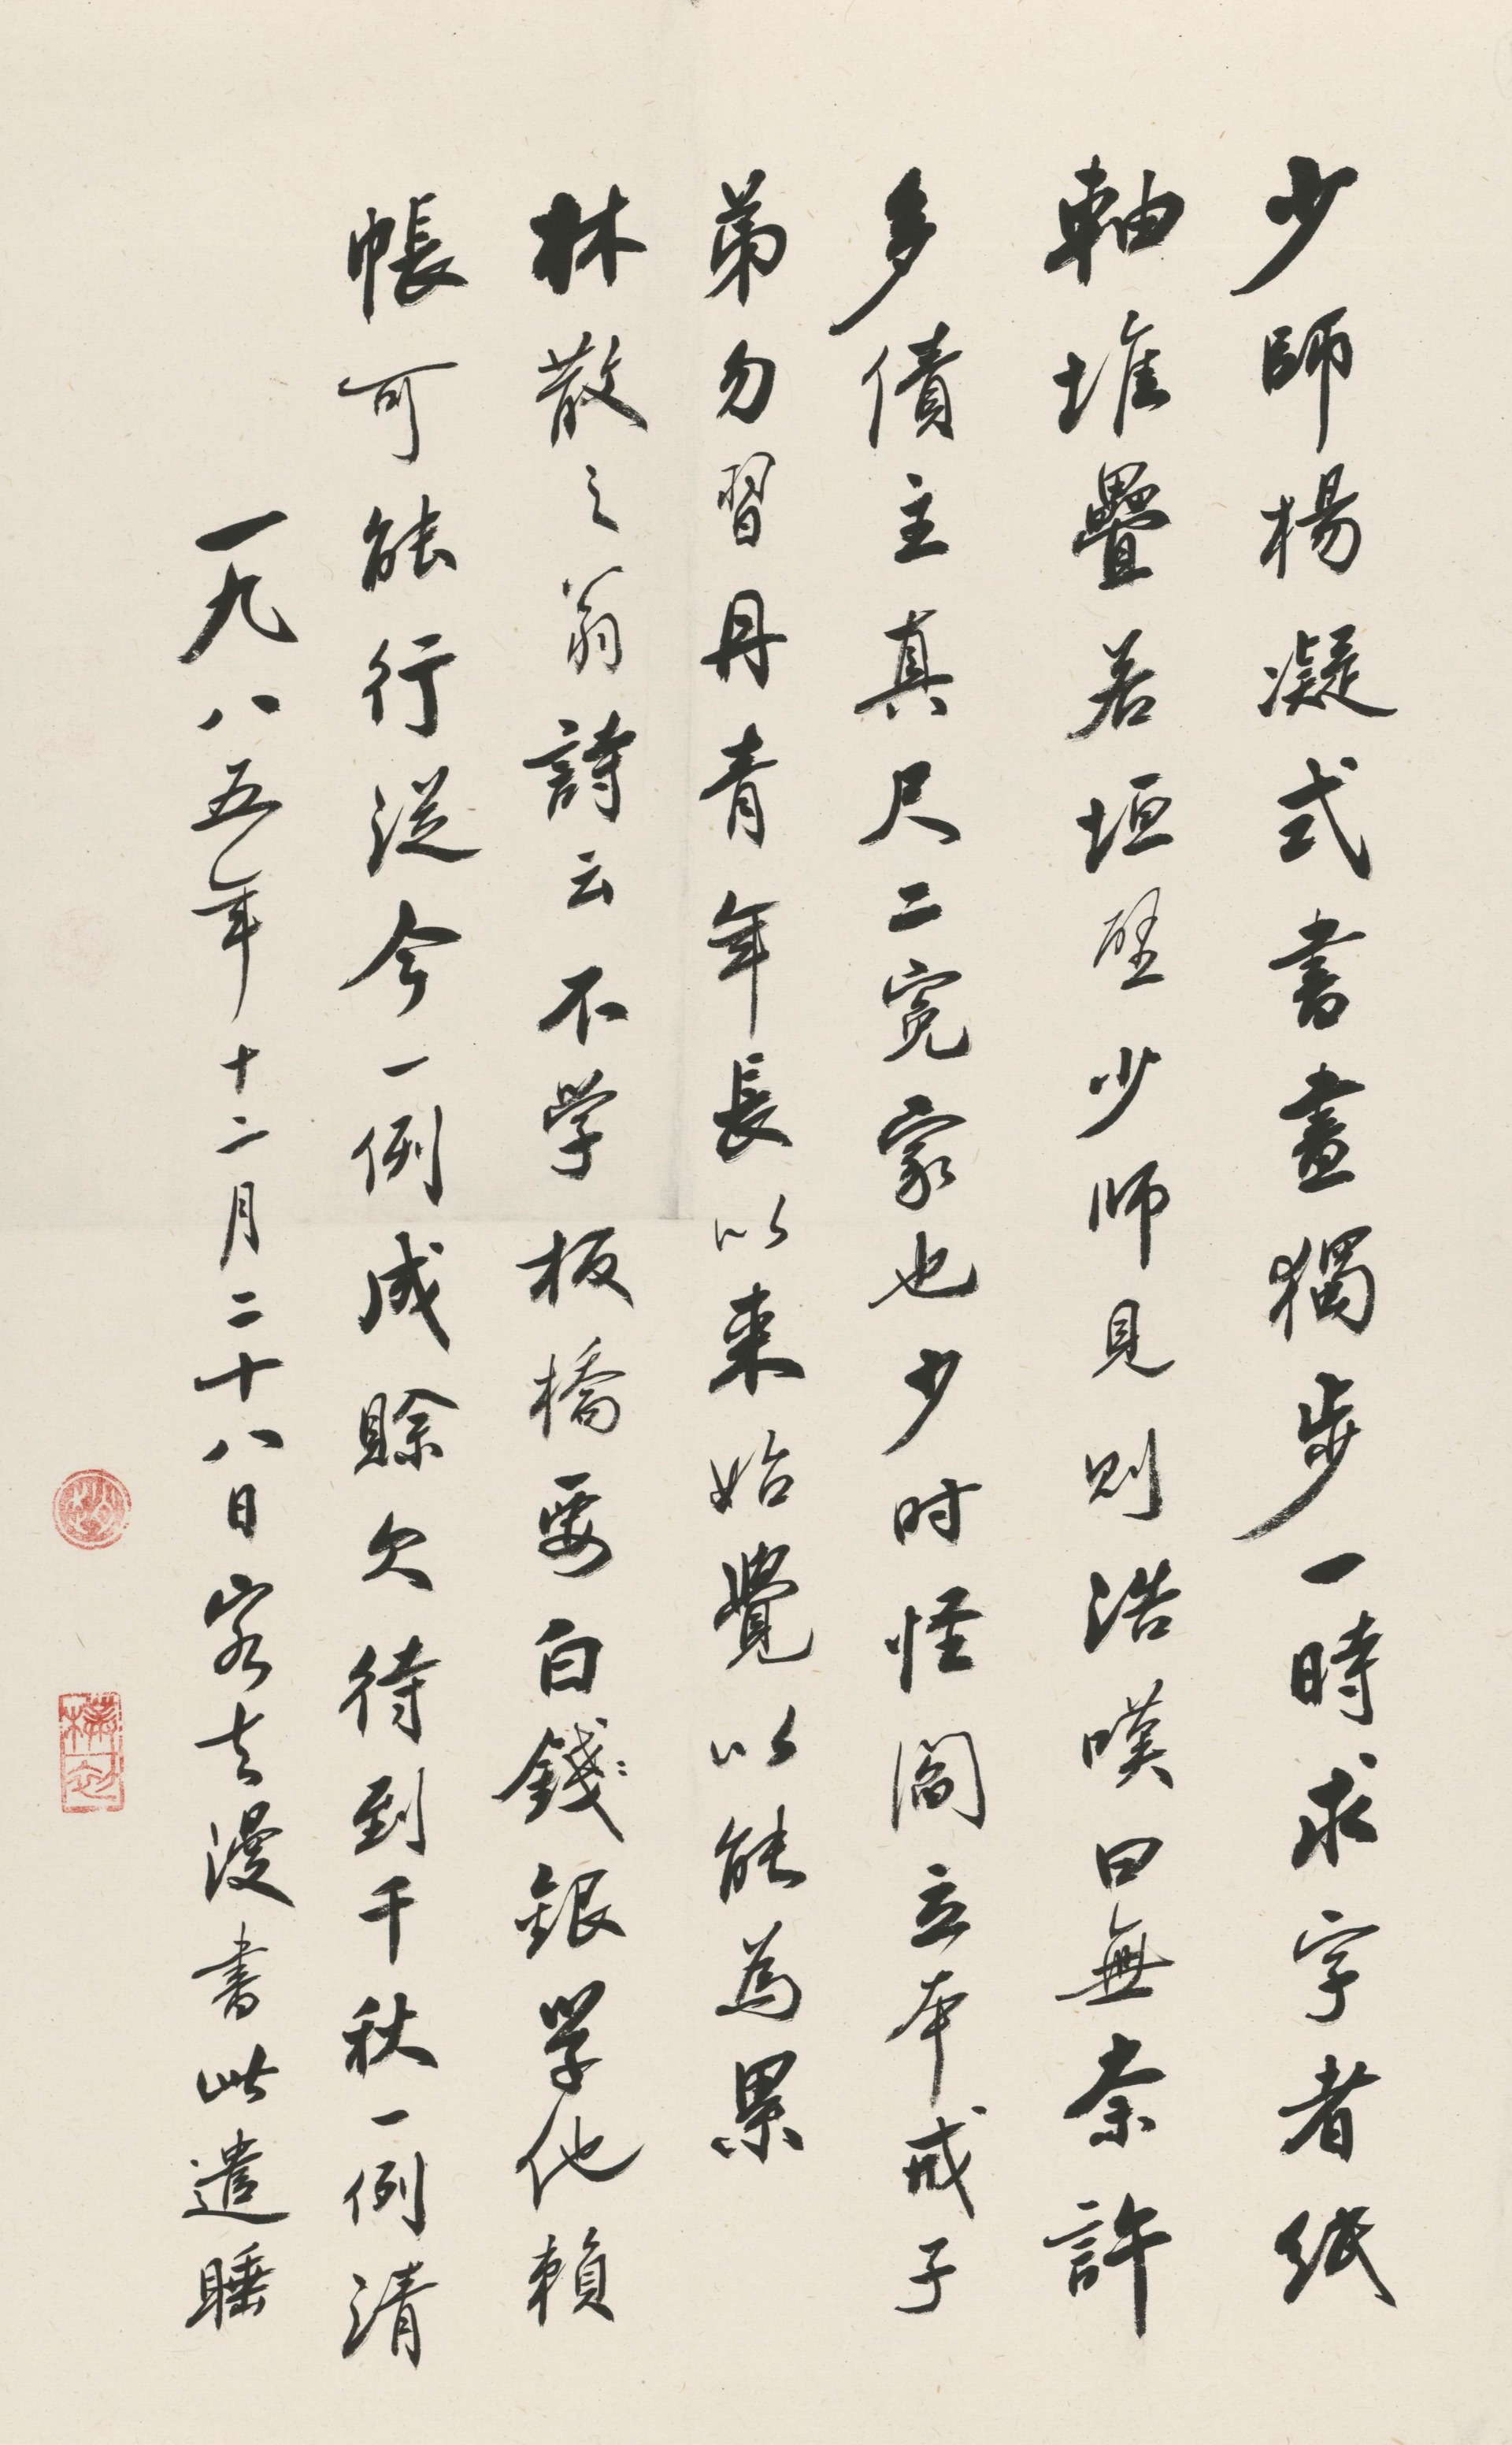 少師楊凝式書畫獨步一時求字者紙
軸堆疊若垣壁少师見则浩嘆曰無奈許
多債主真尺二寃家也少时怪閻立本戒子
弟勿習丹青年長以来始覺以能為累
林散之翁詩云不学板橋要白錢〻銀学他賴
帳可能行從今一例成賒欠待到千秋一例清
一九八五年十二月二十八日客去漫書此遣睡
趙
樸初